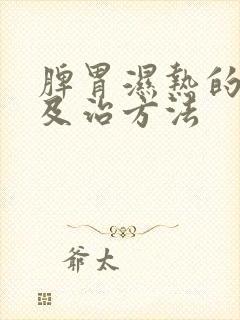 脾胃濕熱的
及治方法
爺太